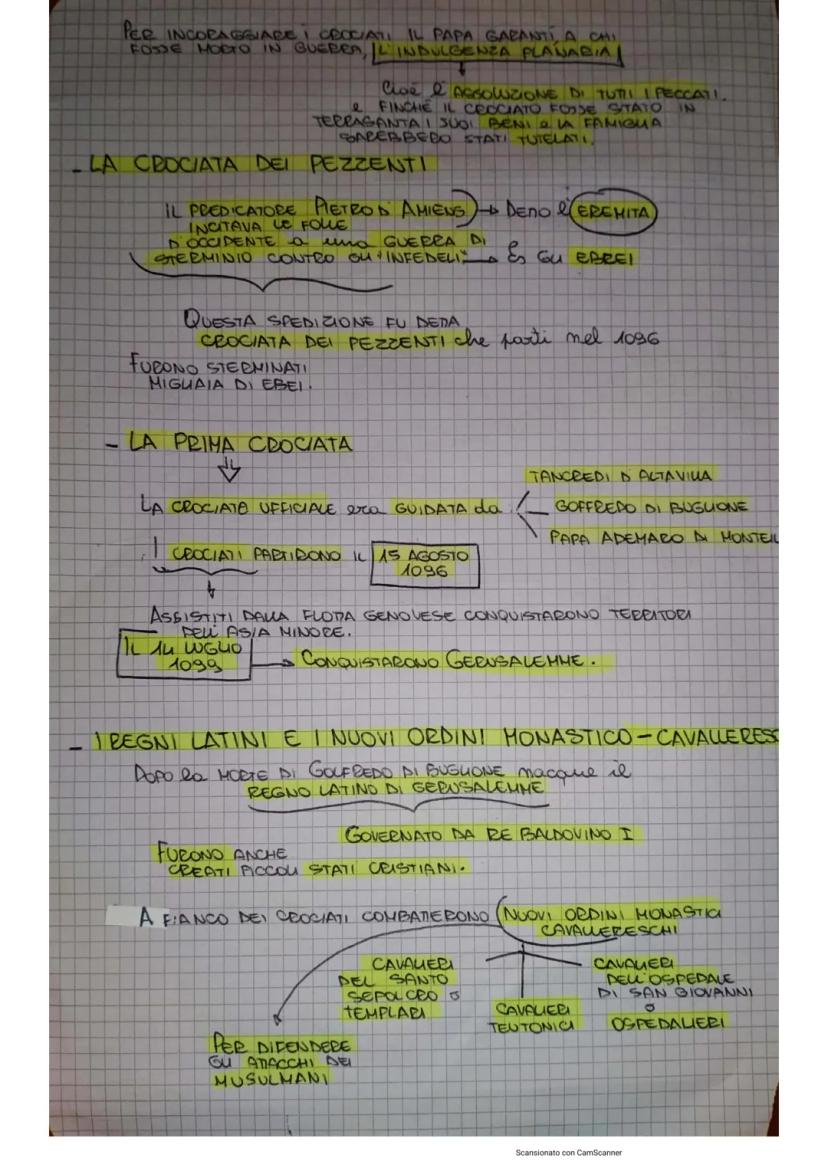 PER INCORAGGIARE i CROCIATI IL PAPA GARANTÌ A CHI
FOSSE MORTO IN GUERRA, L'INDULGENZA PLANARIA
Cioè l'ASSOLUZIONE DI TUTTI I PECCATI.
e FINCHÉ IL CROCIATO FOSSE STATO IN
TERRASANTA I SUOI BENI e LA FAMIGLIA
SAREBBERO STATI TUTELATI.
- LA CROCIATA DEI PEZZENTI
IL PREDICATORE PIETRO D'AMIENS → DETTO l'EREMITA
INCITAVA LE FOLLE
D'OCCIDENTE a una GUERRA DI
STERMINIO CONTRO GLI "INFEDELI" → Es GLI EBREI
QUESTA SPEDIZIONE FU DETTA
CROCIATA DEI PEZZENTI che partì nel 1096
FURONO STERMINATI
MIGLIAIA DI EBEI.
- LA PRIMA CROCIATA
TANCREDI D'ALTAVILLA
LA CROCIATA UFFICIALE era GUIDATA da GOFFREDO DI BUGLIONE
PAPA ADEMARO DI MONTEIL
I CROCIATI PARTIRONO IL 15 AGOSTO
1096
ASSISTITI DALLA FLOTTA GENOVESE CONQUISTARONO TERRITORI
DELL'ASIA MINORE.
IL 14 LUGLIO
1099 → CONQUISTARONO GERUSALEMME.
- I REGNI LATINI E I NUOVI ORDINI MONASTICO-CAVALLERES
DOPO la MORTE DI GOLFREDO DI BUGLIONE nacque il
REGNO LATINO DI GERUSALEMME
GOVERNATO DA RE BALDOVINO I
FURONO ANCHE
CREATI PICCOLI STATI CRISTIANI.
A FIANCO DEI CROCIATI COMBATTERONO NUOVI ORDINI MONASTICI
CAVALLERESCHI
CAVALIERI
DEL SANTO
SEPOLCRO o
TEMPLARI
CAVALIERI
TEUTONICI
CAVALIERI
DELL'OSPEDALE
DI SAN GIOVANNI
o
OSPEDALIERI
PER DIFENDERE
GLI ATTACCHI DEI
MUSULMANI
Scansionato con CamScanner